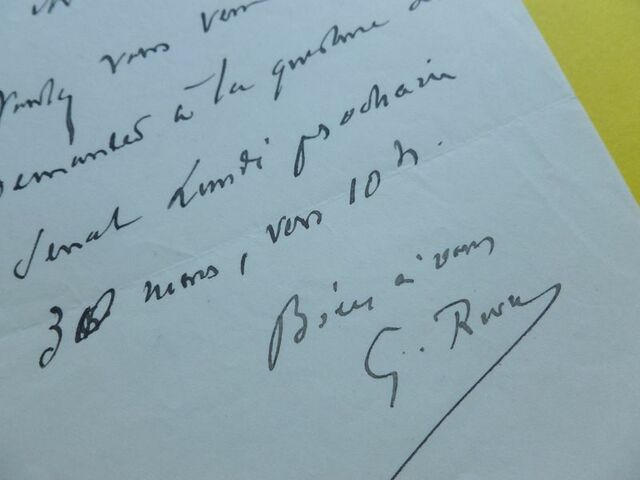 vous
demander à la questure
Sénat Lundi prochain
30 mars, vers 10 h.
Bien à vous
G.